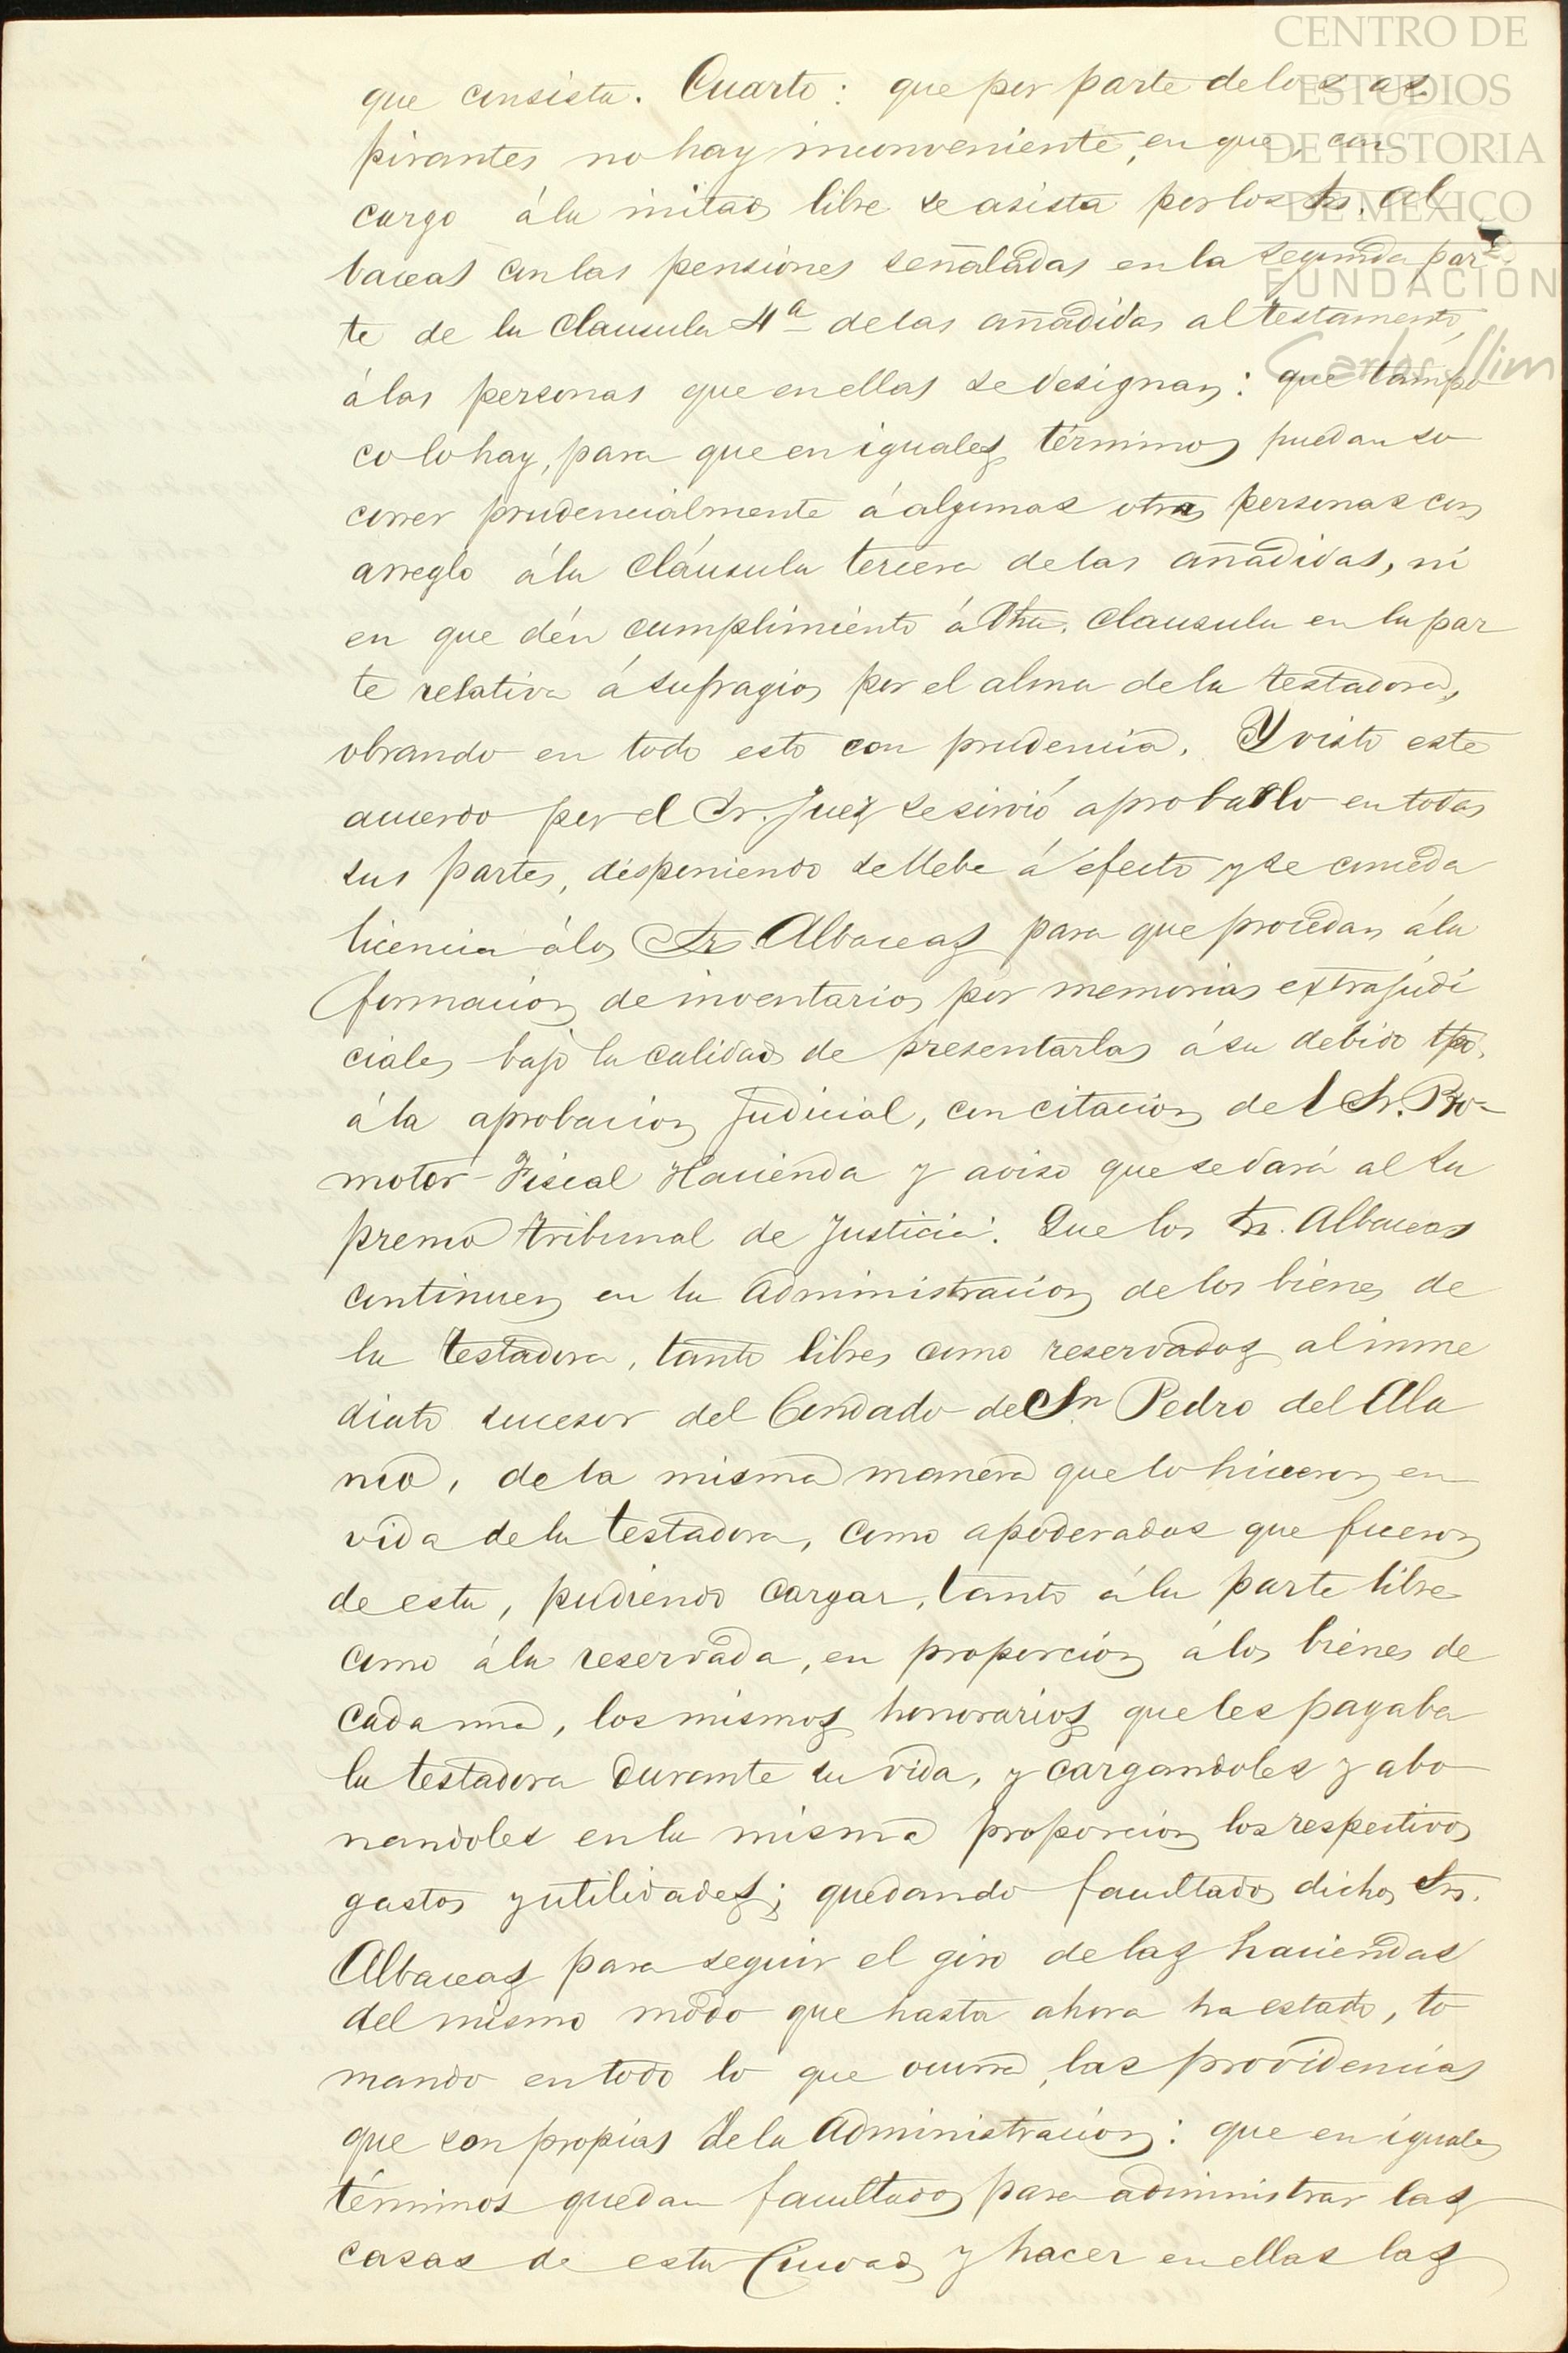 CENTRO DE
ESTUDIOS
DE HISTORIA
DE MÉXICO
FUNDACIÓN
Carlos Slim
que consista. Cuarto: que por parte de los as
pirantes no hay inconveniente, en que, con
cargo á la mitad libre se asista por los Srs. Al
baceas con las pensiones señaladas en la segunda par
te de la Clausula 4ª de las añadidas al testamento,
á las personas que en ellas se designan: que tampo
co lo hay, para que en iguales términos puedan so
correr prudencialmente á algunas otras personas con
arreglo á la cláusula tercera de las añadidas, ni
en que dén cumplimiento á dha. clausula en la par
te relativa á sufragios por el alma de la testadora,
obrando en todo esto con prudencia. Y visto este
acuerdo por el Sr. Juez se sirvió aprobarlo en todas
sus partes, disponiendo se llebe á efecto y se conceda
licencia á los Srs. Albaceas para que procedan á la
formacion de inventarios por memorias extrajudi
ciales bajo la calidad de presentarlas á su debido tpo.
á la aprobacion judicial, con citacion del Sr. Pro-
motor Fiscal Hacienda y aviso que se dará al Su
premo tribunal de Justicia. Que los Srs. Albaceas
continuen en la Administracion de los bienes de
la testadora, tanto libres como reservados al inme
diato sucesor del Condado de Sn Pedro del Ala
mo, de la misma manera que lo hicieron en
vida de la testadora, como apoderados que fueron
de esta, pudiendo cargar, tanto á la parte libre
como á la reservada, en proporcion á los bienes de
cada una, los mismos honorarios que les pagaba
la testadora durante su vida, y cargandoles y abo
nandoles en la misma proporcion los respectivos
gastos y utilidades; quedando facultados dichos Srs.
Albaceas para seguir el giro de las haciendas
del mismo modo que hasta ahora ha estado, to
mando en todo lo que ocurra, las providencias
que son propias de la Administracion: que en iguales
términos quedan facultados para administrar las
casas de esta Ciudad y hacer en ellas las